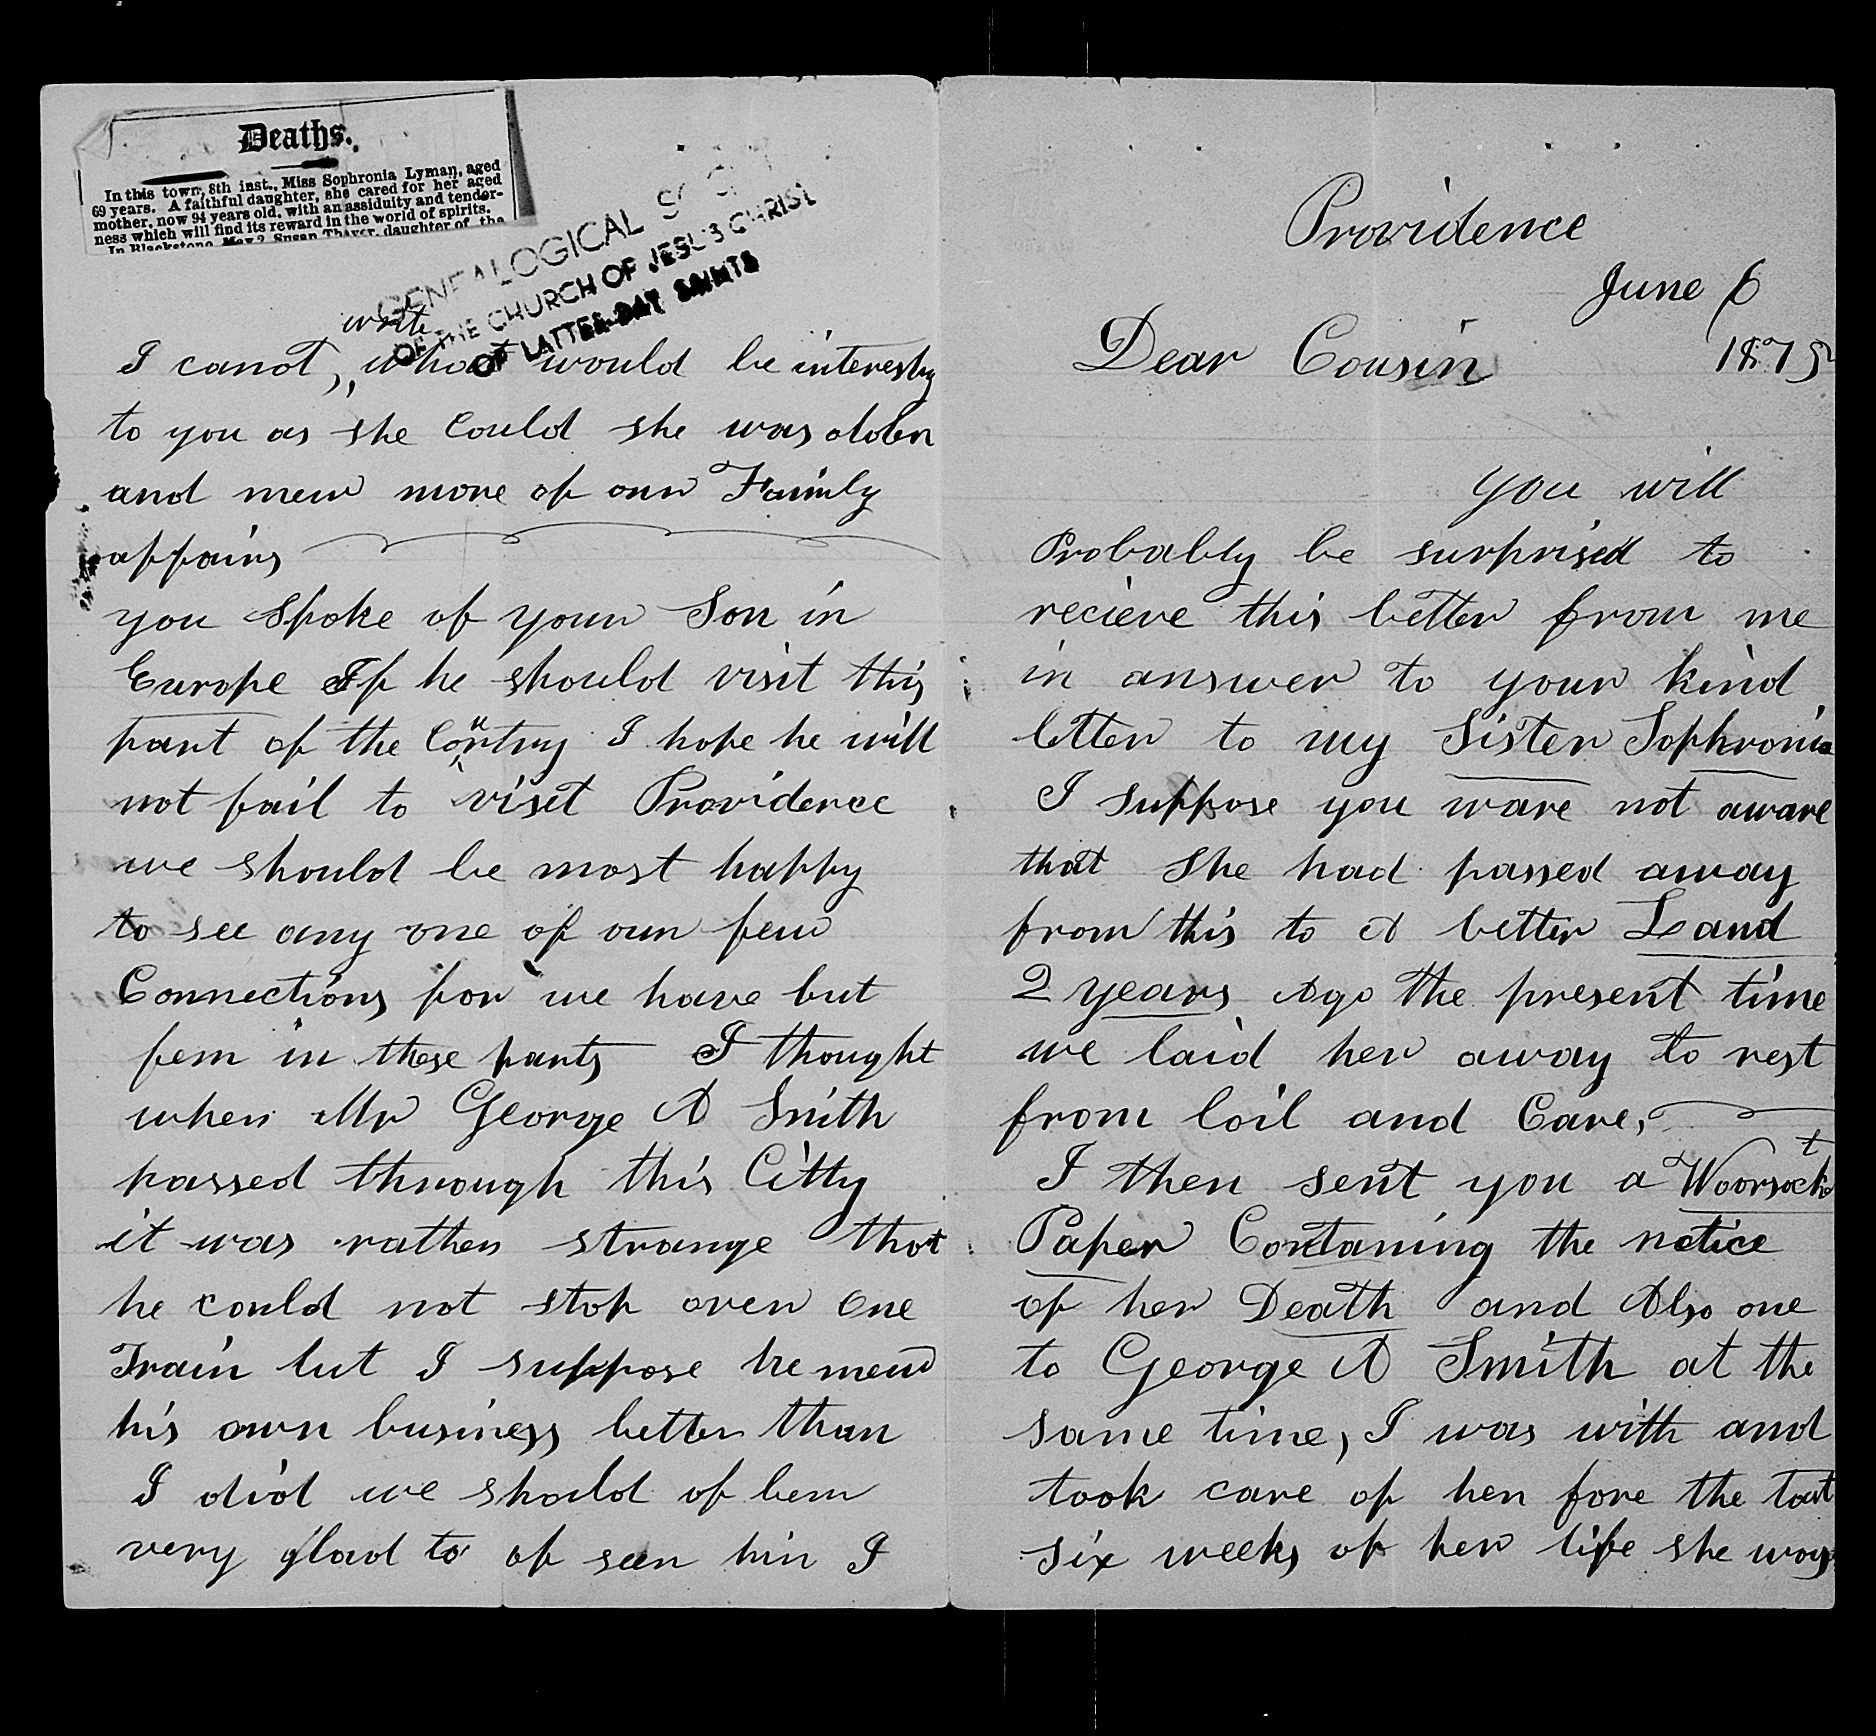 Deaths.
In this town, 8th inst., Miss Sophronia Lyman, aged
69 years. A faithful daughter, she cared for her aged
mother, now 94 years old, with an assiduity and tender-
ness which will find its reward in the world of spirits.
In Blackstone, May 2, Susan Thayer, daughter of the
GENEALOGICAL SOCI
OF THE CHURCH OF JESUS CHRIST
OF LATTER-DAY SAINTS
write
I canot, what would be interestig
to you as she could she was older
and new more of our Family
affairs
you spoke of your Son in
Europe If he should visit this
part of the Country I hope he will
not fail to visit Providence
we should be most happy
to see any one of our few
Connections for we have but
few in these parts I thought
when Mr George A Smith
passed through this Citty
it was rather strange that
he could not stop over one
Train but I suppose he new
his own business better than
I did we should of been
very glad to of seen him I
Providence
June 6
1875
Dear Cousin
you will
Probably be surprised to
recieve this letter from me
in answer to your kind
letter to my Sister Sophronia
I suppose you ware not aware
that she had passed away
from this to A better Land
2 years Ago the present time
we laid her away to rest
from toil and Care,
I then sent you a Woonsocket
Paper Contaning the notice
of her Death and Also one
to George A Smith at the
same time, I was with and
took care of her fore the last
six weeks of her life she was